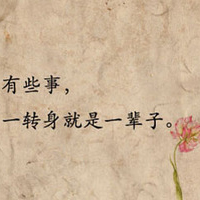 有些事，
一转身就是一辈子。